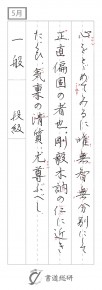 5月
心をとめてみるに唯無智無分別にして
正直偏固の者也剛毅木訥の仁に近き
たぐひ気禀の清質尤尊ぶべし
一般 段級
書道総研